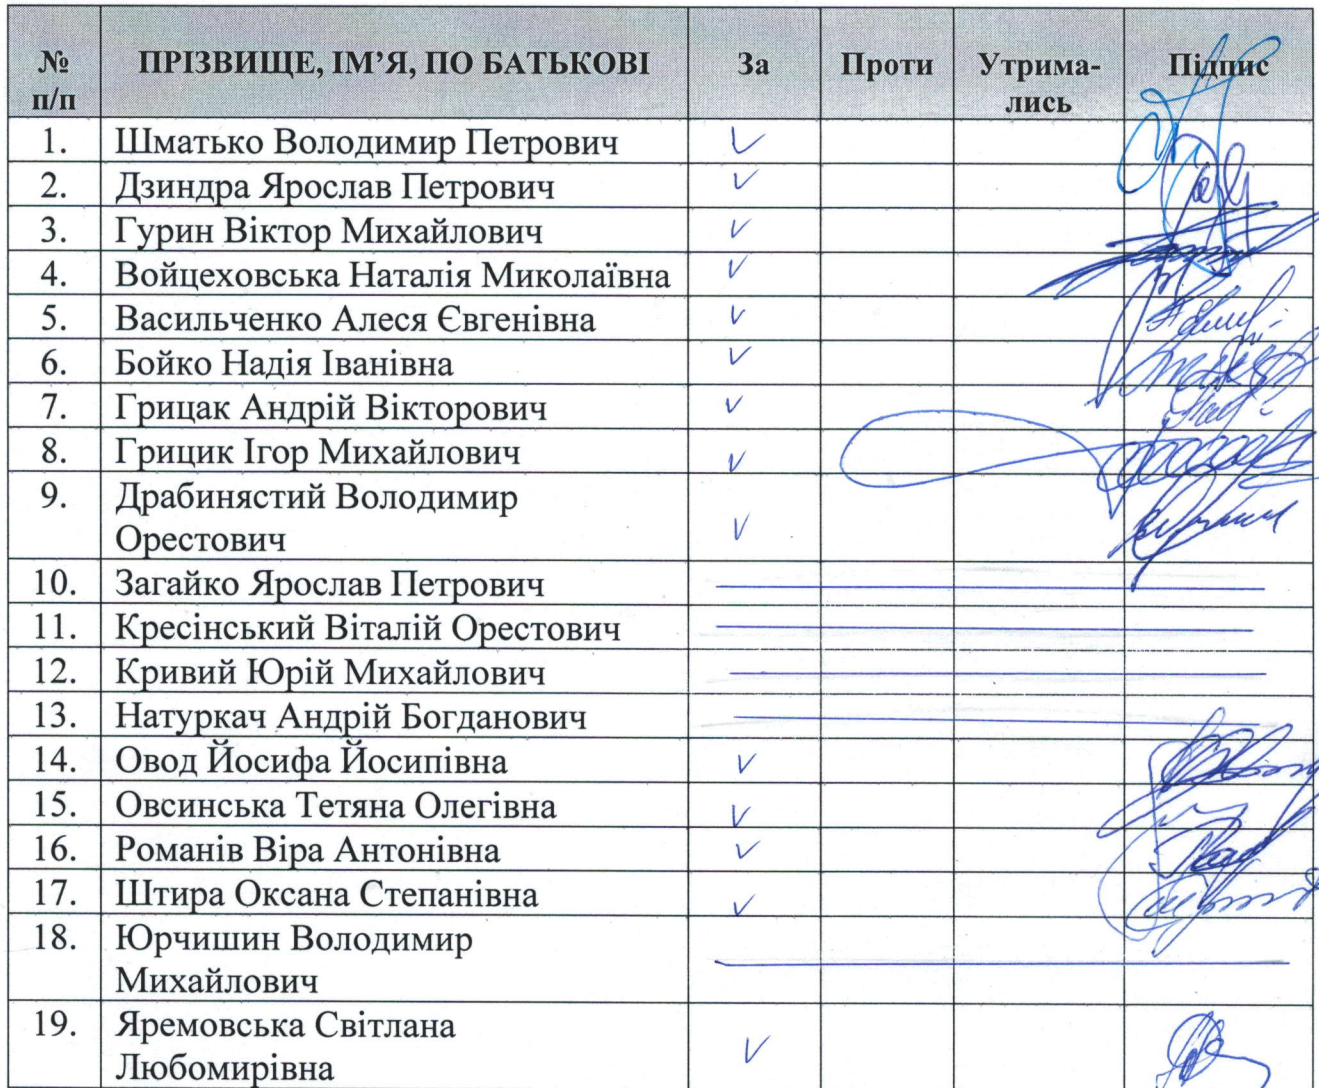 № п/п ПРІЗВИЩЕ, ІМ’Я, ПО БАТЬКОВІ За Проти Утрима-лись Підпис
1. Шматько Володимир Петрович V
2. Дзиндра Ярослав Петрович V
3. Гурин Віктор Михайлович V
4. Войцеховська Наталія Миколаївна V
5. Васильченко Алеся Євгенівна V
6. Бойко Надія Іванівна V
7. Грицак Андрій Вікторович V
8. Грицик Ігор Михайлович V
9. Драбинястий Володимир
Орестович V
10. Загайко Ярослав Петрович
11. Кресінський Віталій Орестович
12. Кривий Юрій Михайлович
13. Натуркач Андрій Богданович
14. Овод Йосифа Йосипівна V
15. Овсинська Тетяна Олегівна V
16. Романів Віра Антонівна V
17. Штира Оксана Степанівна V
18. Юрчишин Володимир
Михайлович
19. Яремовська Світлана
Любомирівна V